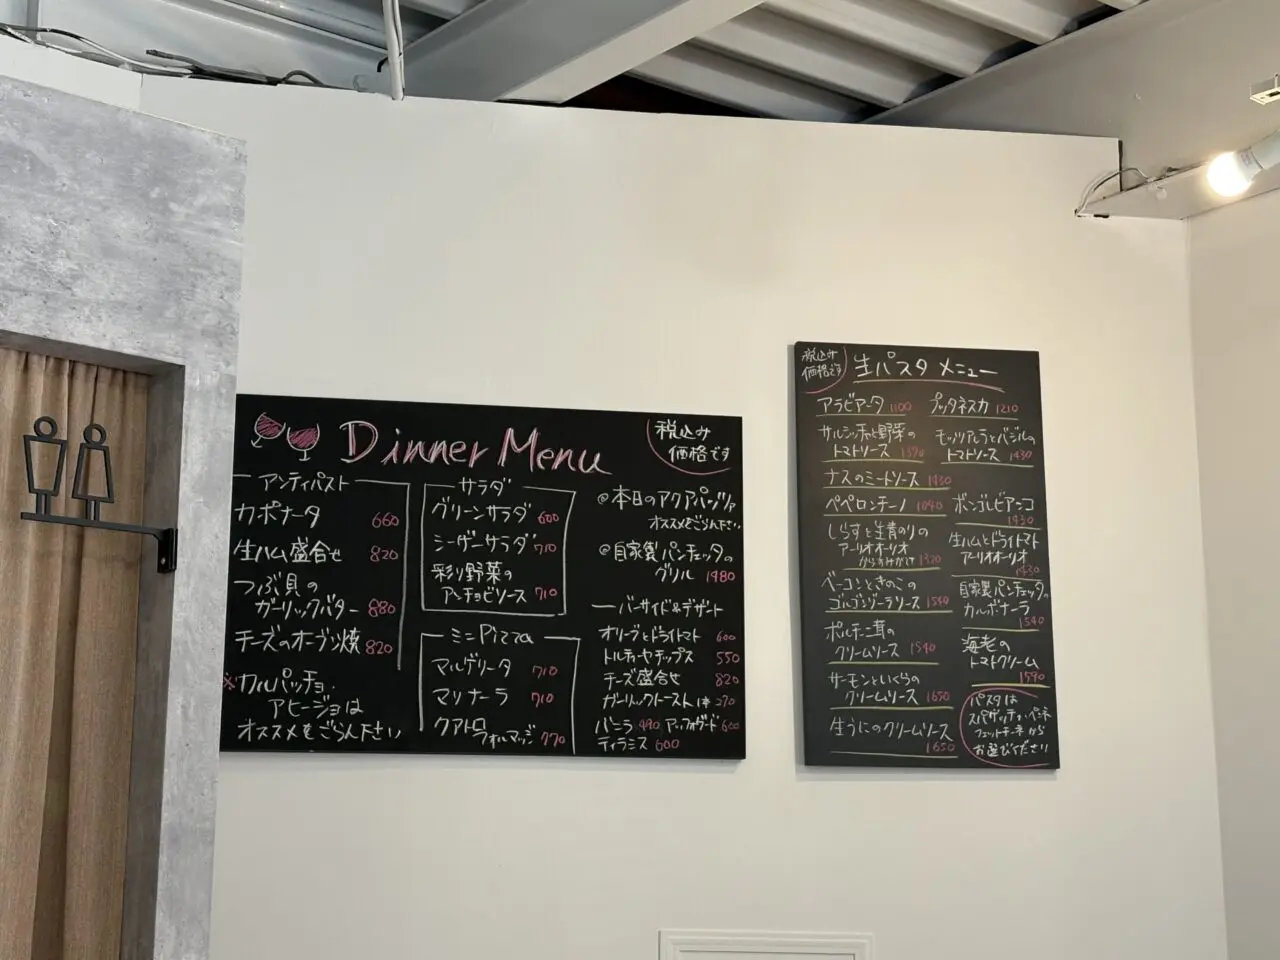 Dinner Menu
税込み
価格です
アンティパスト
カポナータ 660
生ハム盛合せ 820
つぶ貝の
ガーリックバター 880
チーズのオーブン焼 820
※カルパッチョ、
アヒージョは
オススメをごらん下さい
サラダ
グリーンサラダ 600
シーザーサラダ 710
彩り野菜の
アンチョビソース 710
ミニPizza
マルゲリータ 710
マリナーラ 710
クアトロ
フォルマッジ 770
@本日のアクアパッツァ
オススメをごらん下さい
@自家製パンチェッタの
グリル 1980
バーサイド&デザート
オリーブとドライトマト 600
トルティーヤチップス 550
チーズ盛合せ 820
ガーリックトースト1本 270
バニラ 490 アッフォガード 600
ティラミス 600
税込み
価格です
生パスタ メニュー
アラビアータ 1100
サルシッチャと野菜の
トマトソース 1370
ナスのミートソース 1430
ペペロンチーノ 1040
しらすと生青のりの
アーリオオーリオ
からすみがけ 1320
ベーコンときのこの
ゴルゴンゾーラソース 1540
ポルチーニ茸の
クリームソース 1540
サーモンといくらの
クリームソース 1650
生うにのクリームソース
1650
プッタネスカ 1210
モッツァレラとバジルの
トマトソース 1430
ボンゴレビアンコ
1430
生ハムとドライトマト
アーリオオーリオ
1430
自家製パンチェッタの
カルボナーラ
1540
海老の
トマトクリーム
1590
パスタは
スパゲッティ・ペンネ
フェットチーネから
お選びください